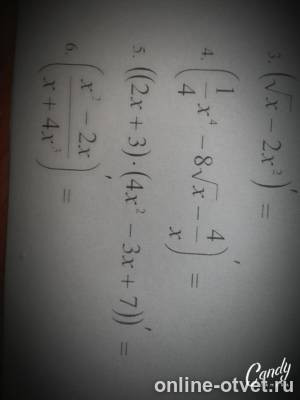 3. (√x − 2x²)′ =
4. (1/4 x⁴ − 8√x − 4/x)′ =
5. ((2x + 3)·(4x² − 3x + 7))′ =
6. ((x² − 2x)/(x + 4x³))′ =
Candy
online-otvet.ru